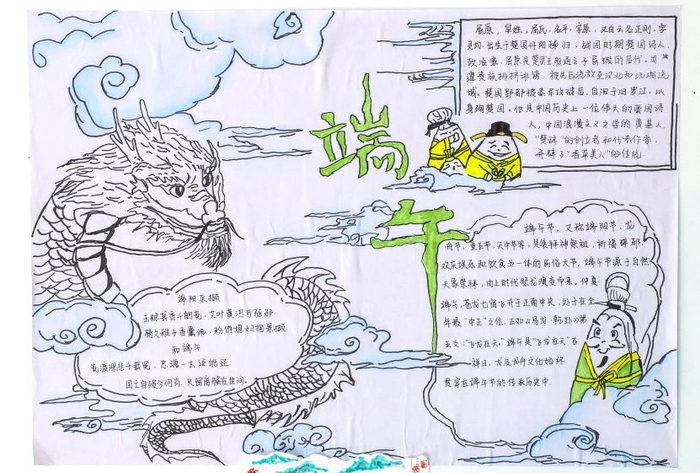 端午
屈原，芈姓，屈氏，名平，字原，又自云名正则，字
灵均，出生于楚国丹阳秭归，战国时期楚国诗人、
政治家。屈原是楚武王熊通之子屈瑕的后代。因
遭贵族排挤诽谤，被先后流放至汉北和沅湘流
域。楚国郢都被秦军攻破后，自沉于汨罗江，以
身殉楚国。他是中国历史上一位伟大的爱国诗
人，中国浪漫主义文学的奠基人，
“楚辞”的创立者和代表作家，
开辟了“香草美人”的传统
端午节，又称端阳节、龙
舟节、重五节、天中节等，是集拜神祭祖、祈福辟邪、
欢庆娱乐和饮食为一体的民俗大节。端午节源于自然
天象崇拜，由上古时代祭龙演变而来。仲夏
端午，苍龙七宿飞升于正南中央，处于在全
年最“中正”之位，正如《易经·乾卦》第
五爻：“飞龙在天”。端午是“飞龙在天”吉
祥日，龙及龙舟文化始终
贯穿在端午节的传承历史中
端阳采撷
玉粽袭香千舸竞，艾叶黄酒可驱邪
骑父稚子香囊佩，粉俏媳妇把景撷
和端午